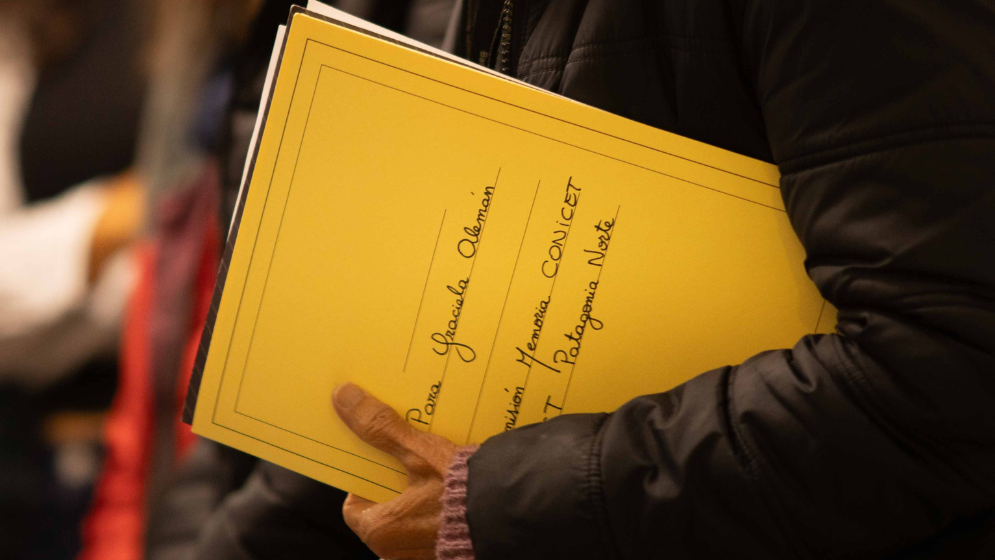 Para Graciela Alemán
Memoria CONICET
Patagonia Norte